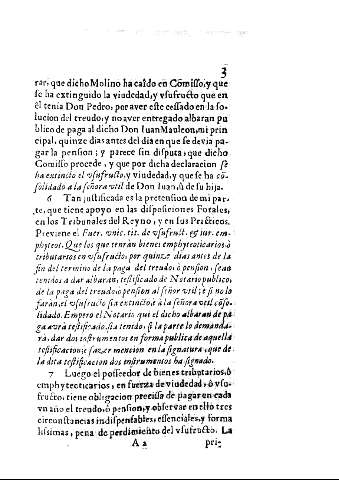 3
rar, que dicho Molino ha caìdo en Cõmisso, y que
se ha extinguido la viudedad, y vsufructo que en
èl tenia Don Pedro, por aver este cessado en la so-
lucion del treudo, y no aver entregado albaran pu
blico de paga al dicho Don Iuan Mauleon, mi prin
cipal, quinze dias antes del dia en que se devia pa-
gar la pension; y parece sin disputa, que dicho
Comisso procede, y que por dicha declaracion se
ha extincto el vsufructo, y viudedad, y que se ha cõ-
solidado a la señora vtil de Don Iuan, ù de su hija.
6 Tan justificada es la pretension de mi par-
te, que tiene apoyo en las disposiciones Forales,
en los Tribunales del Reyno, y en sus Practicos.
Previene el Fuer. vnic. tit. de vsufruct. & iur. em-
phyteos. Que los que tenràn bienes emphyteoticarios, ò
tributarios en vsufructo, por quinze dias antes de la
fin del termino de la paga del treudo, ò pension, sean
tenidos a dar albaràn, testificado de Notario publico,
de la paga del treudo, ò pension al señor vtil; è si no lo
faràn, el vsufructo sia extincto, è a la señora vtil cõso-
lidado. Empero el Notario qui el dicho albaran de pa
ga avrà testificado, sia tenido, si la parte lo demanda-
rà, dar dos instrumentos en forma publica de aquella
testificacion; e fazer mencion en la signatura, que de
la dita testificacion dos instrumentos ha signado.
7 Luego el possedor de bienes tributarios, ò
emphyteoticarios, en fuerza de viudedad, ò vsu-
fructo, tiene obligacion precissa de pagar en cada
vn año el treudo, ò pension, y observar en ello tres
circunstancias indispensables, essenciales, y forma
lissimas, pena de perdimiento del vsufructo. La
A 2 pri-